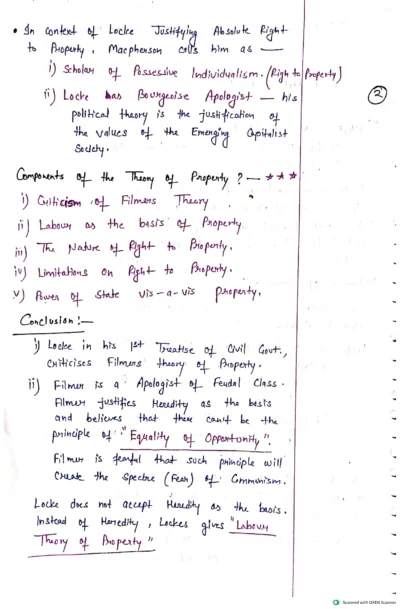 • In context of Locke Justifying Absolute Right
to Property, Macpherson calls him as —
i) Scholar of Possessive Individualism. (Righ to Property)
ii) Locke as Bourgeoise Apologist — his
political theory is the justification of
the values of the Emerging Capitalist
Society.
2
Components of the Theory of Property ? — ***
i) Criticism of Filmers Theory
ii) Labour as the basis of Property
iii) The Nature of Right to Property.
iv) Limitations on Right to Property.
v) Power of State vis-a-vis Property.
Conclusion :—
i) Locke in his 1st Treatise of Civil Govt.,
criticises Filmers theory of Property.
ii) Filmer is a Apologist of Feudal Class.
Filmer justifies Heredity as the basis
and believes that there can't be the
principle of "Equality of Opportunity".
Filmer is fearful that such principle will
create the Spectre (Fear) of Communism.
Locke does not accept Heredity as the basis.
Instead of Heredity, Lockes gives "Labour
Theory of Property"
Scanned with OKEN Scanner